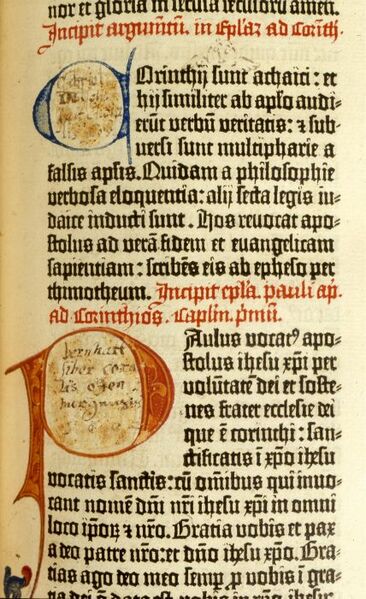 nor et gloria in secula seculorũ amen.
Incipit argumentũ. in Epłaz ad Corinth.
Corinthij sunt achaici: et
hij similiter ab apło audi-
erũt verbũ veritatis: ⁊ sub-
versi sunt multipharie a
falsis apłis. Quidam a philosophie
verbosa eloquentia: alij secta legis iu-
daice inducti sunt. Hos revocat apo-
stolus ad verã fidem et evangelicam
sapientiam: scribẽs eis ab epheso per
thimotheum. Incipit epła. pauli ap.
ad Corinthios. Caplm. pmũ.
Paulus vocatꝰ apo-
stolus ihesu xp̃i per
volũtatẽ dei et soste-
nes frater ecclesie dei
que ẽ corinthi: san-
ctificatis ĩ xp̃o ihesu
vocatis sanctis: cũ omĩbus qui invo-
cant nomẽ dñi nr̃i ihesu xp̃i in omni
loco ip̃oꝝ ⁊ nr̃o. Gratia vobis et pax
a deo patre nr̃o: et dño ihesu xp̃o. Gra-
tias ago deo meo semp̲ p̲ vobis ĩ gra-